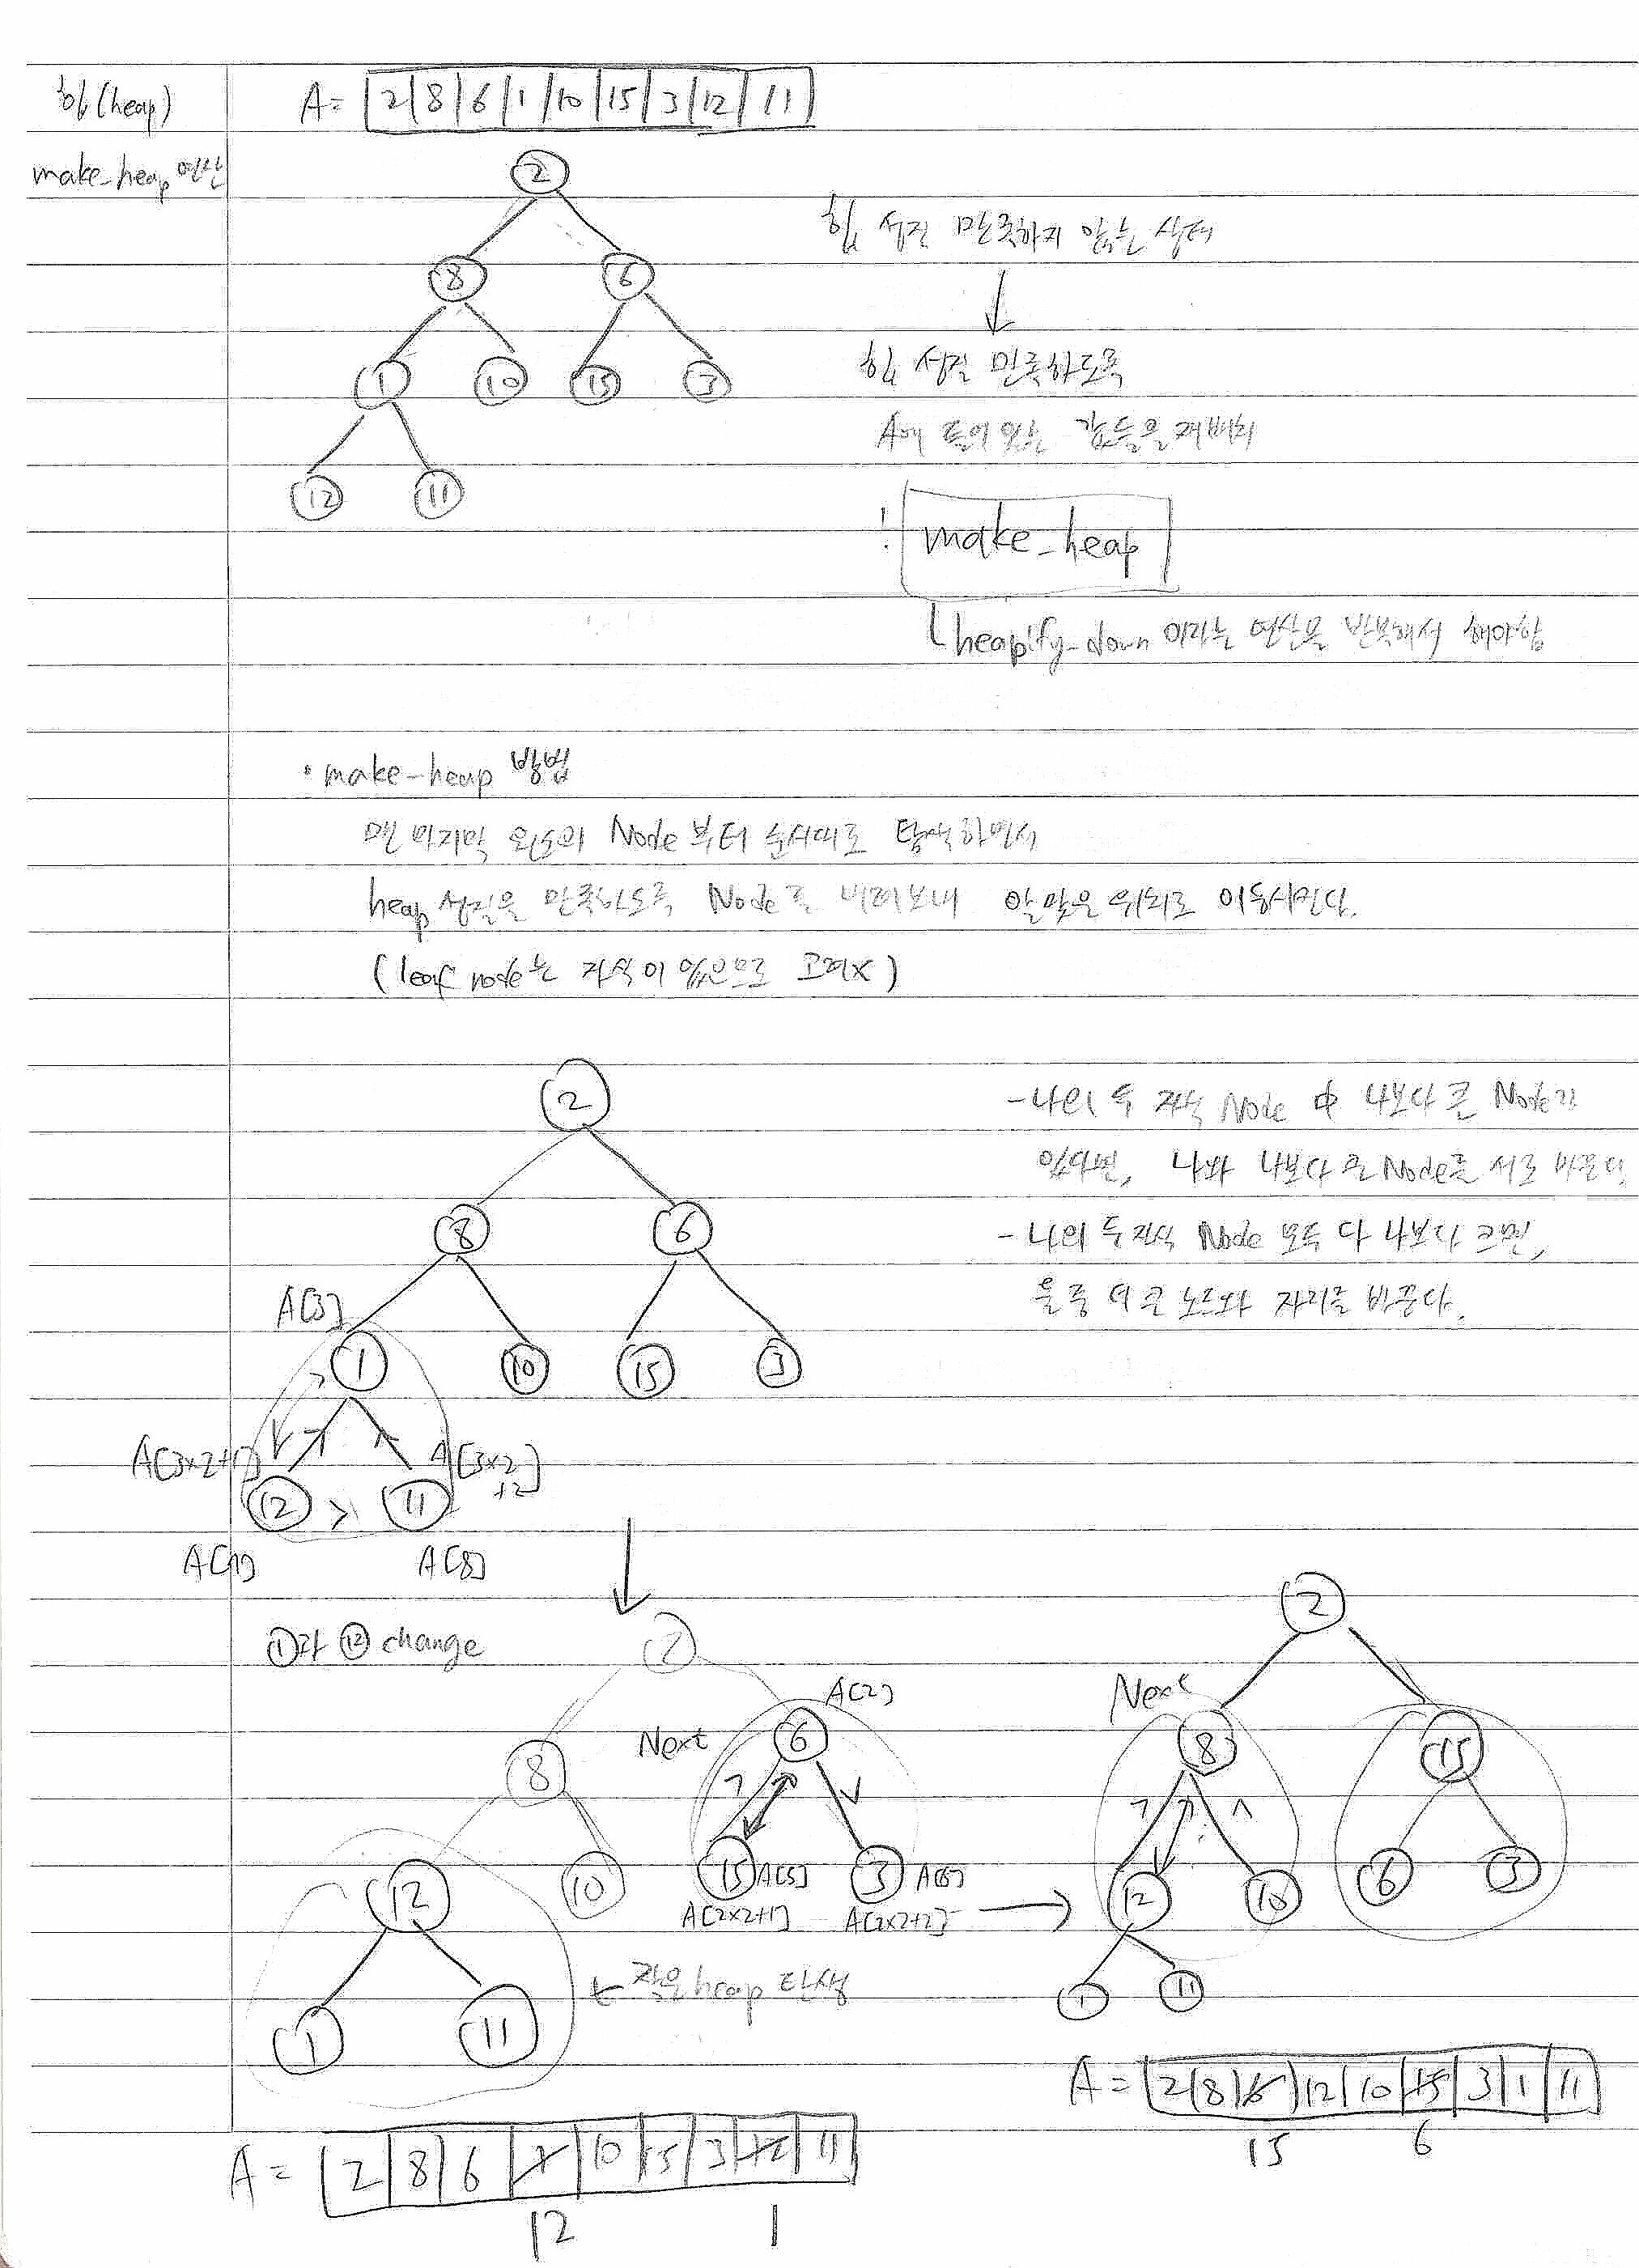 힙(heap)
A = 2 8 6 1 10 15 3 12 11
make_heap 연산
2
8 6
1 10 15 3
12 11
힙 성질 만족하지 않는 상태
↓
힙 성질 만족하도록
A에 들어있는 값들을 재배치
: make_heap
heapify_down 이라는 연산을 반복해서 해야함
· make-heap 방법
맨 마지막 원소의 Node 부터 순서대로 탐색하면서
heap 성질을 만족하도록 Node를 내려보내 알맞은 위치로 이동시킨다.
(leaf node는 자식이 없으므로 고려x)
2
8 6
A[3]
1 10 15 3
A[3×2+1] A[3×2+2]
12 > 11
A[7] A[8]
- 나의 두 자식 Node 中 나보다 큰 Node가
있다면, 나와 나보다 큰 Node를 서로 바꾼다.
- 나의 두 자식 Node 모두 다 나보다 크면,
둘 중 더 큰 노드와 자리를 바꾼다.
↓
①과 ⑫ change
2
A[2]
8 Next 6
12 10 15 A[5] 3 A[6]
A[2×2+1] A[2×2+2] →
1 11
← 작은 heap 탄생
A = 2 8 6 1 10 15 3 12 11
12 1
2
Next
8 15
12 10 6 3
1 11
A = 2 8 6 12 10 15 3 1 11
15 6